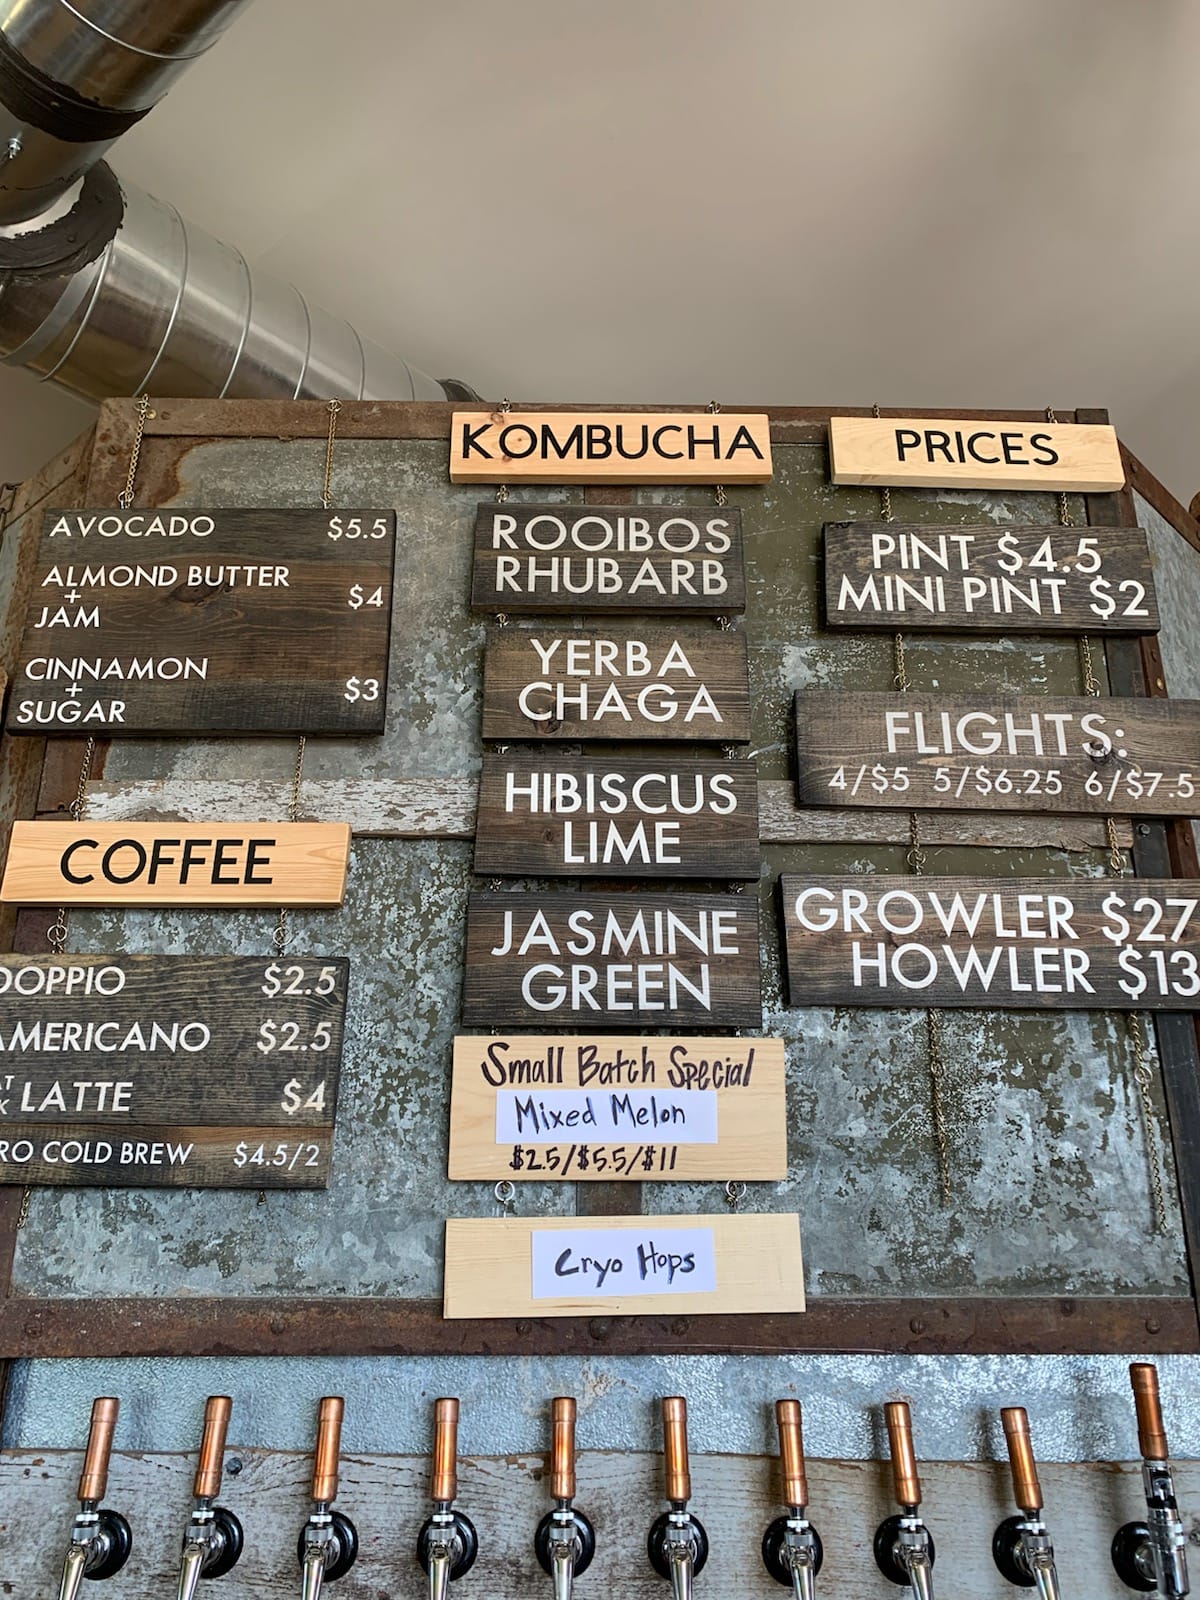 AVOCADO $5.5
ALMOND BUTTER
+
JAM
$4
CINNAMON
+
SUGAR
$3
COFFEE
DOPPIO $2.5
AMERICANO $2.5
LATTE $4
COLD BREW $4.5/2
KOMBUCHA
ROOIBOS
RHUBARB
YERBA
CHAGA
HIBISCUS
LIME
JASMINE
GREEN
Small Batch Special
Mixed Melon
$2.5/$5.5/$11
Cryo Hops
PRICES
PINT $4.5
MINI PINT $2
FLIGHTS:
4/$5 5/$6.25 6/$7.5
GROWLER $27
HOWLER $13